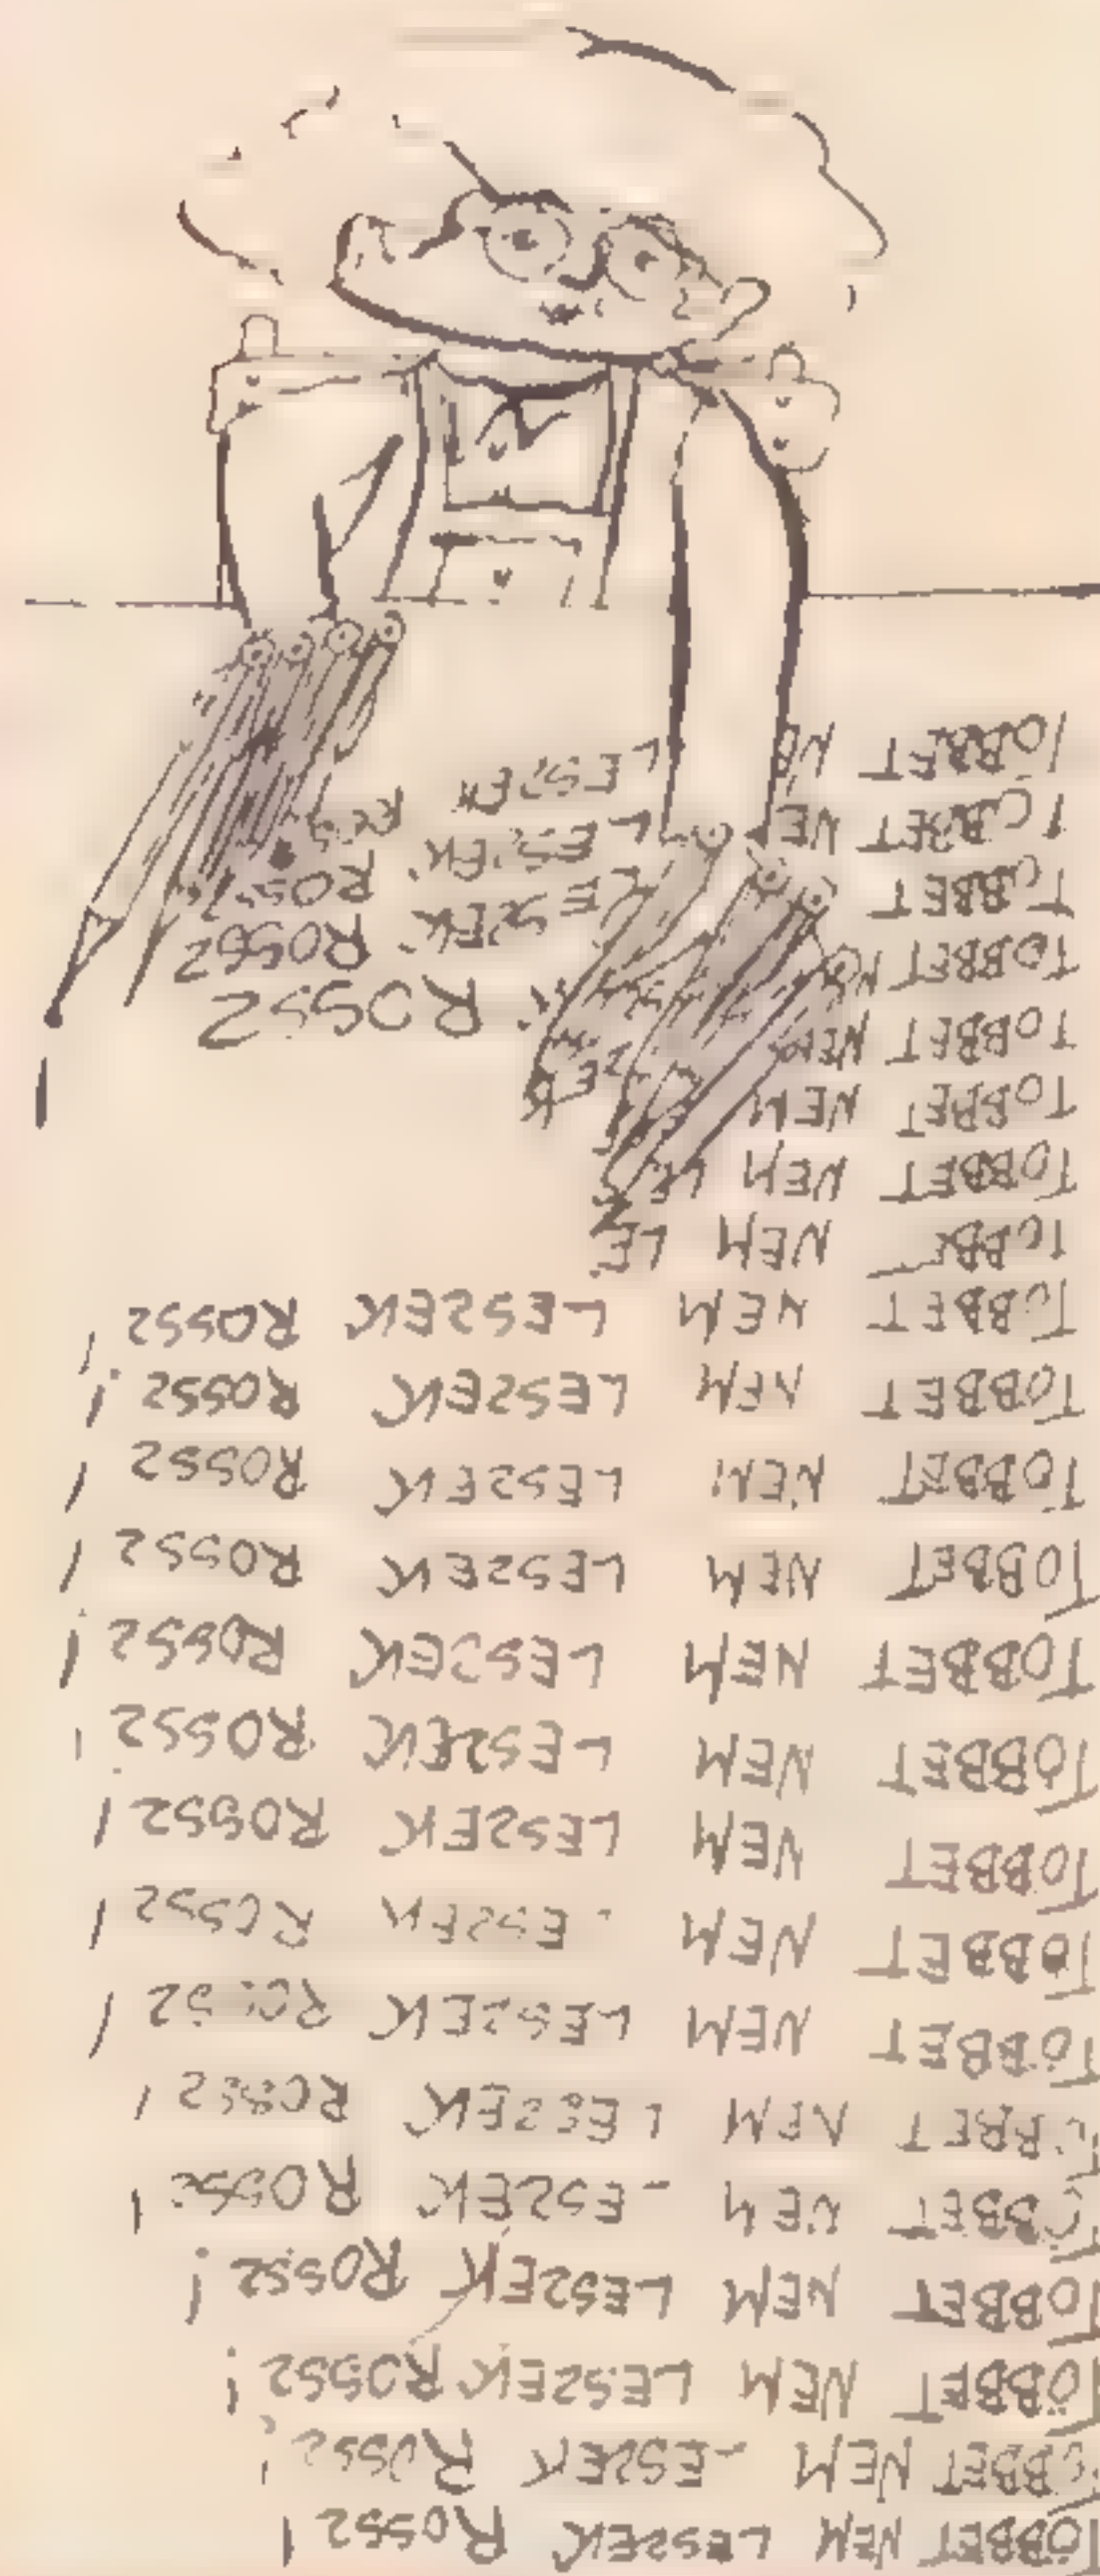 TÖBBET NEM LESZEK ROSSZ!
TÖBBET NEM LESZEK ROSSZ!
TÖBBET NEM LESZEK ROSSZ!
TÖBBET NEM LESZEK ROSSZ!
TÖBBET NEM LESZEK ROSSZ!
TÖBBET NEM LESZEK ROSSZ!
TÖBBET NEM LESZEK ROSSZ!
TÖBBET NEM LESZEK ROSSZ!
TÖBBET NEM LESZEK ROSSZ!
TÖBBET NEM LESZEK ROSSZ!
TÖBBET NEM LESZEK ROSSZ!
TÖBBET NEM LESZEK ROSSZ!
TÖBBET NEM LESZEK ROSSZ!
TÖBBET NEM LESZEK ROSSZ!
TÖBBET NEM LESZEK ROSSZ!
TÖBBET NEM LE
TÖBBET NEM LE
TÖBBET NEM
TÖBBET NEM
TÖBBET K ROSSZ
TÖBBET LESZEK ROSSZ
TÖBBET NE LESZEK ROSSZ
TÖBBET LESZEK ROS